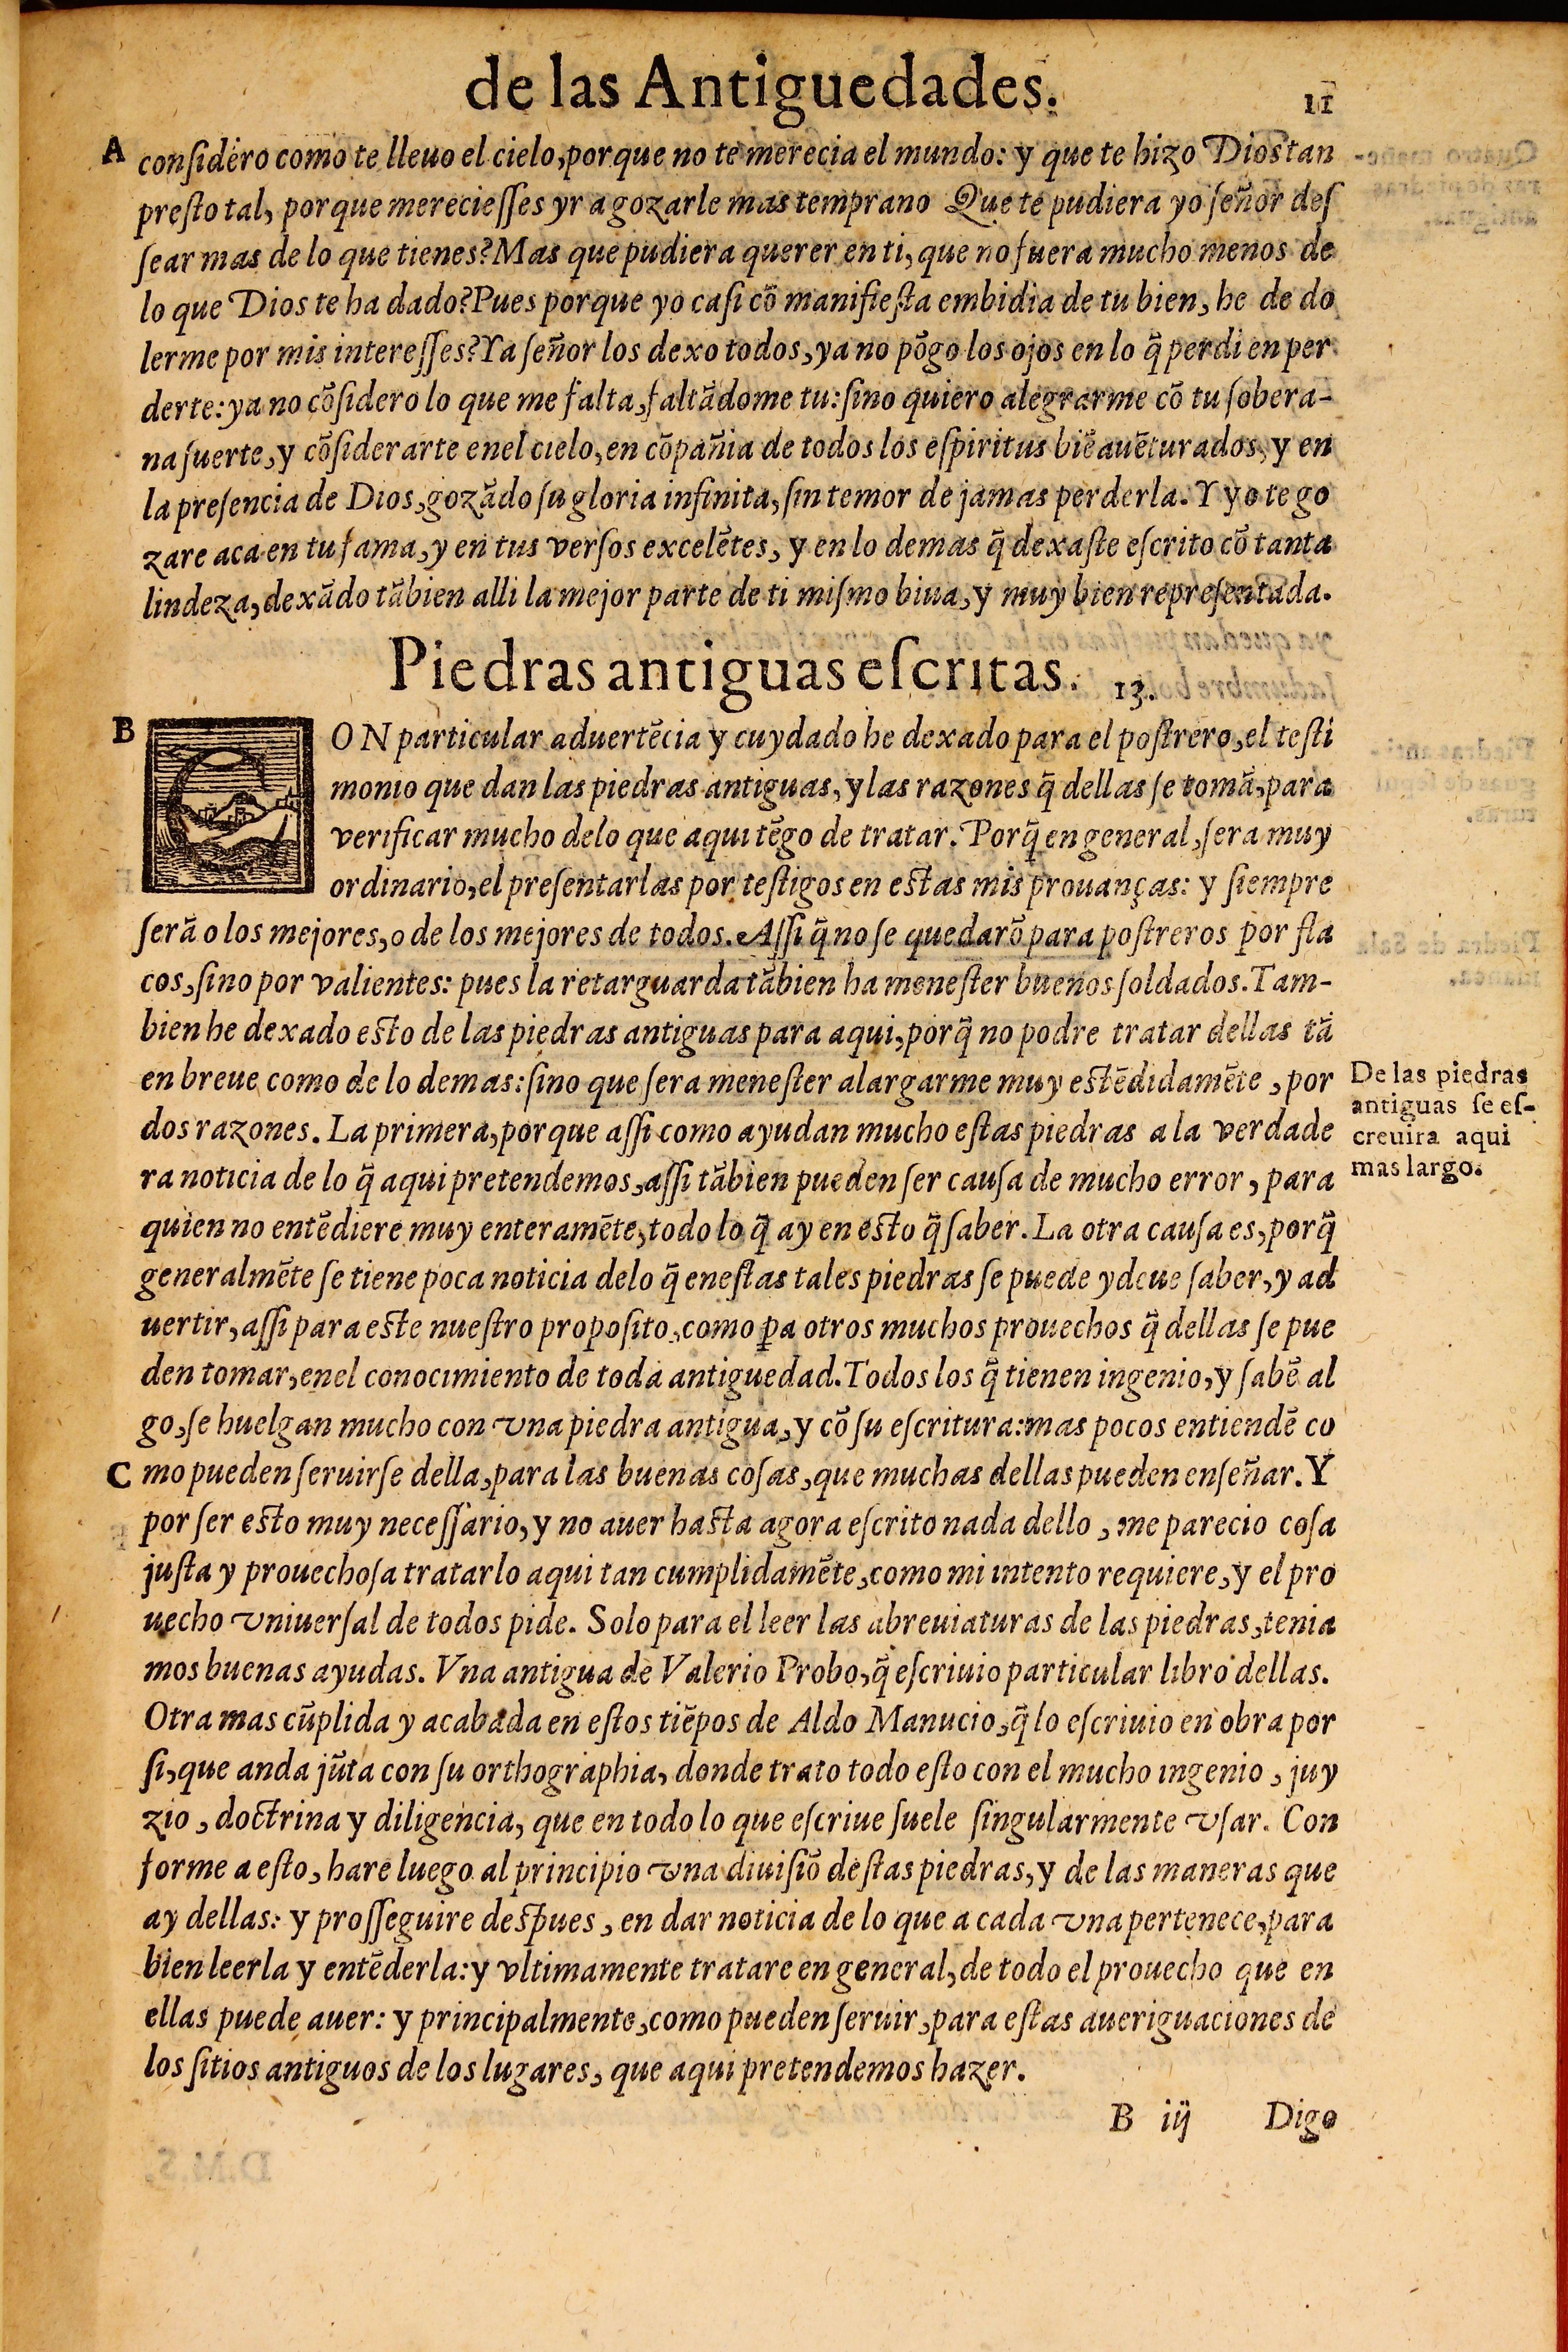 de las Antiguedades. 11
A considero como te lleuo el cielo, porque no te merecia el mundo: y que te hizo Dios tan
presto tal, porque mereciesses yr a gozarle mas temprano Que te pudiera yo señor des
sear mas de lo que tienes? Mas que pudiera querer en ti, que no fuera mucho menos de
lo que Dios te ha dado? Pues porque yo casi cõ manifiesta embidia de tu bien, he de do
lerme por mis interesses? Ya señor los dexo todos, ya no põgo los ojos en lo q̃ perdi en per
derte: ya no cõsidero lo que me falta, faltãdome tu: sino quiero alegrarme cõ tu sobera-
na suerte, y cõsiderarte enel cielo, en cõpañia de todos los espiritus biẽ auẽturados, y en
la presencia de Dios, gozãdo su gloria infinita, sin temor de jamas perderla. Y yo te go
zare aca en tu fama, y en tus versos excelẽtes, y en lo demas q̃ dexaste escrito cõ tanta
lindeza, dexãdo tãbien alli la mejor parte de ti mismo biua, y muy bien representada.
Piedras antiguas escritas. 13.
B CON particular aduertẽcia y cuydado he dexado para el postrero, el testi
monio que dan las piedras antiguas, y las razones q̃ dellas se tomã, para
verificar mucho delo que aqui tẽgo de tratar. Porq̃ en general, sera muy
ordinario, el presentarlas por testigos en estas mis prouanças: y siempre
serã o los mejores, o de los mejores de todos. Assi q̃ no se quedarõ para postreros por fla
cos, sino por valientes: pues la retarguarda tãbien ha menester buenos soldados. Tam-
bien he dexado esto de las piedras antiguas para aqui, porq̃ no podre tratar dellas tã
en breue como de lo demas: sino que sera menester alargarme muy estẽdidamẽte, por
dos razones. La primera, porque assi como ayudan mucho estas piedras a la verdade
ra noticia de lo q̃ aqui pretendemos, assi tãbien pueden ser causa de mucho error, para
quien no entẽdiere muy enteramẽte, todo lo q̃ ay en esto q̃ saber. La otra causa es, porq̃
generalmẽte se tiene poca noticia delo q̃ enestas tales piedras se puede y deue saber, y ad
uertir, assi para este nuestro proposito, como ꝑa otros muchos prouechos q̃ dellas se pue
den tomar, enel conocimiento de toda antiguedad. Todos los q̃ tienen ingenio, y sabẽ al
go, se huelgan mucho con vna piedra antigua, y cõ su escritura: mas pocos entiendẽ co
C mo pueden seruirse della, para las buenas cosas, que muchas dellas pueden enseñar. Y
por ser esto muy necessario, y no auer hasta agora escrito nada dello, me parecio cosa
justa y prouechosa tratarlo aqui tan cumplidamẽte, como mi intento requiere, y el pro
uecho vniuersal de todos pide. Solo para el leer las abreuiaturas de las piedras, tenia
mos buenas ayudas. Vna antigua de Valerio Probo, q̃ escriuio particular libro dellas.
Otra mas cũplida y acabada en estos tiẽpos de Aldo Manucio, q̃ lo escriuio en obra por
si, que anda jũta con su orthographia, donde trato todo esto con el mucho ingenio, juy
zio, doctrina y diligencia, que en todo lo que escriue suele singularmente vsar. Con
forme a esto, hare luego al principio vna diuisiõ destas piedras, y de las maneras que
ay dellas: y prosseguire despues, en dar noticia de lo que a cada vna pertenece, para
bien leerla y entẽderla: y vltimamente tratare en general, de todo el prouecho que en
ellas puede auer: y principalmente, como pueden seruir, para estas aueriguaciones de
los sitios antiguos de los lugares, que aqui pretendemos hazer.
De las piedras
antiguas se es-
creuira aqui
mas largo.
B iij Digo